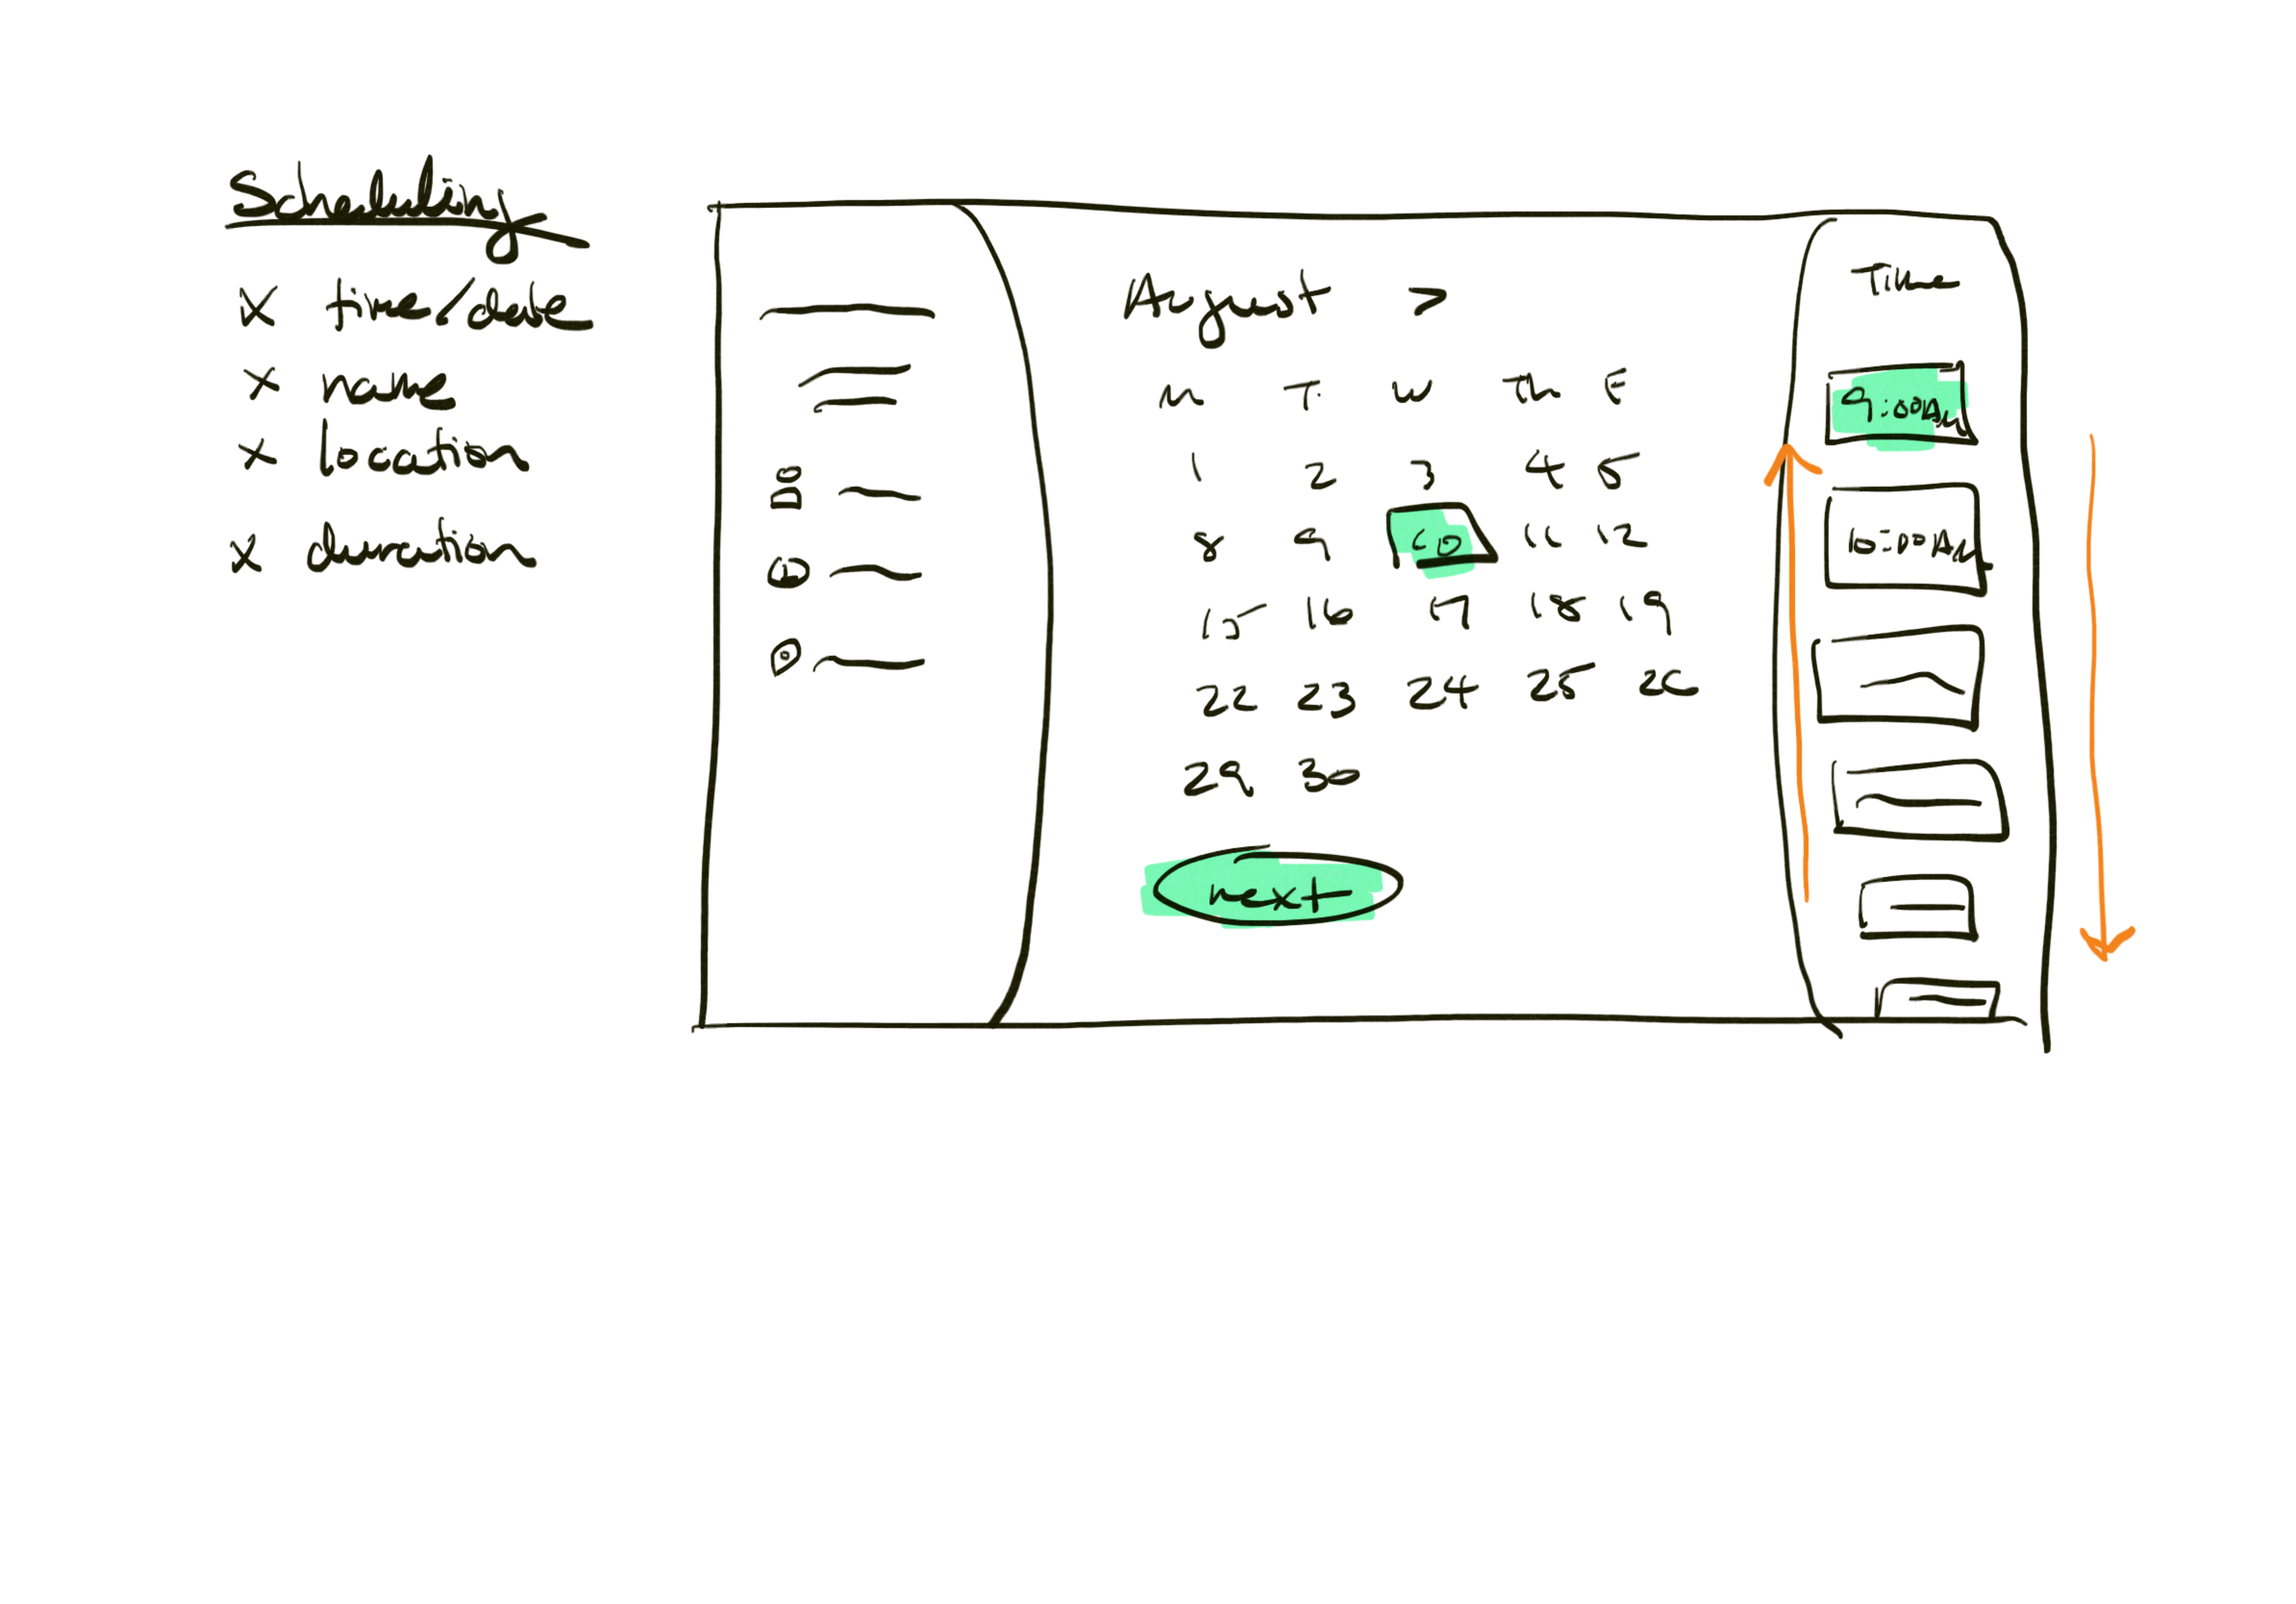 Scheduling
x time/date
x name
x location
x duration
August >
M T. W Th F
1 2 3 4 5
8 9 10 11 12
15 16 17 18 19
22 23 24 25 26
29 30
next
Time
9:00AM
10:00AM